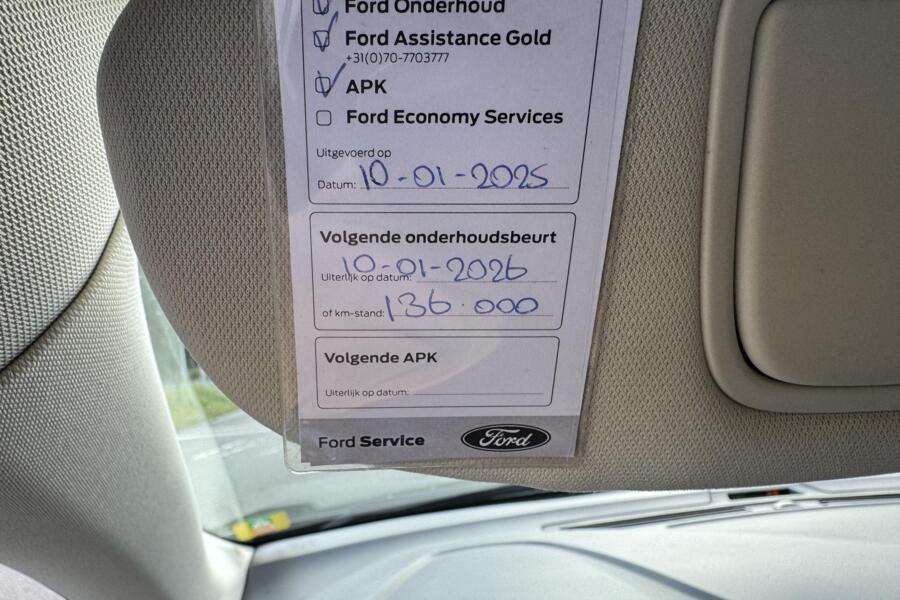 Ford Onderhoud
Ford Assistance Gold
+31(0)70-7703777
APK
Ford Economy Services
Uitgevoerd op
Datum: 10-01-2025
Volgende onderhoudsbeurt
Uiterlijk op datum: 10-01-2026
of km-stand: 136.000
Volgende APK
Uiterlijk op datum:
Ford Service
Ford